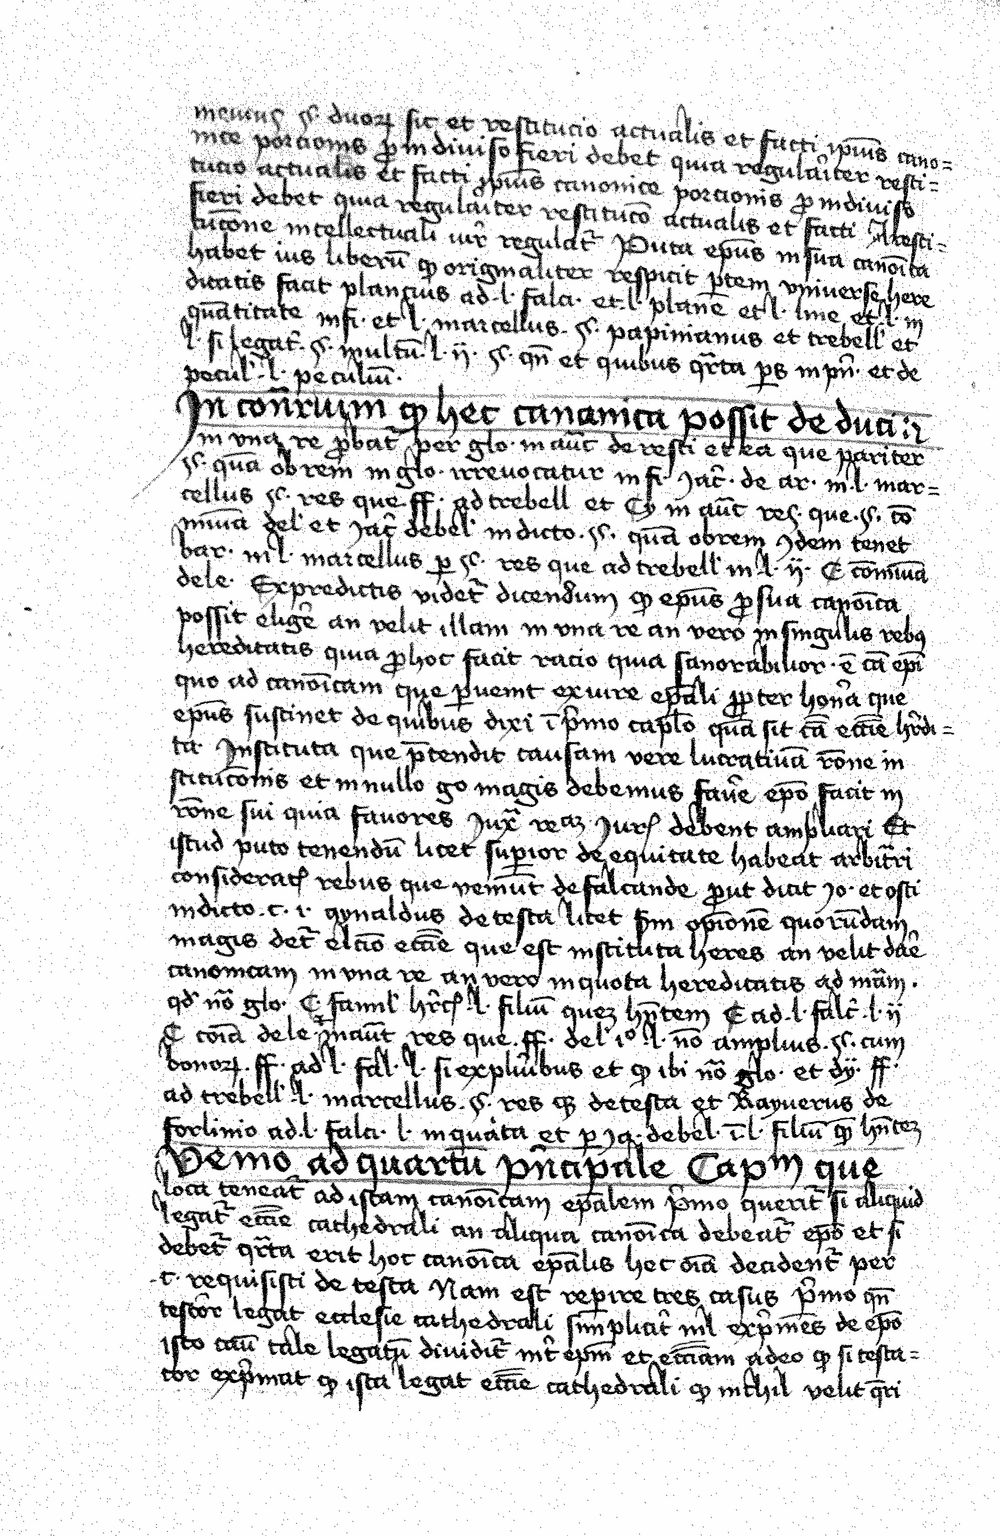 §. duorum sit et restitucio actualis et facti ipius cano=
nice porcionis pro indiviso fieri debet quia regulariter resti=
tucio actualis et facti ipius canonice porcionis pro indiviso
fieri debet quia regulariter restituco actualis et facti resti=
tucone intellectuali iur regulat Puta epus in sua canoica
habet ius liberu qp originaliter respicit ptem universe here
ditatis facit plancius ad .l. falci. et .l. plane et l. line et .l. in
quatitate in fi. et l. marcellus. §. papinianus et trebell et
l. si legat. §. multu. l. ij. §. qn et quibus qrta ps in pn. et de
pecul. l. peculiu.
In conrium qp hec cananica possit de duci
in una re probat per glo. in auc de resti et ea que pariter
§. qua obrem in glo. irrevocatur in fi. Jac. de ar. in .l. mar=
cellus §. res que ff. ad trebell et Cy in auc res. que. §. co
miua del et Jac de bel in dicto. §. qua obrem Idem tenet
bar. in l. marcellus p §. res que ad trebell in .l. ij. C comiua
dele. Expredictis videt dicendum qp epus pro sua canoica
possit eligere an velit illam in una re an vero in singulis rebus
hereditatis quia pro hoc facit racio quia favorabilior. e ca epi
quo ad canoicam que pvenit ex iure epali propter honra que
epus sustinet de quibus dixi i primo caplo qua sit ca eccie hrdi=
ta Instituta que ptendit causam vere lucrativa rone in
stitucois et in nullo go magis debemus favere epo facit in
rone sui quia favores Jux Juris debent ampliari Et
istud puto tenendu licet superior de equitate habeat arbitri
consideratis rebus que veniunt defalcande prout dicit Jo. et osti
in dicto. c. i. Raynaldus de testa licet scdm opione quorundam
magis det elcio eccie que est instituta heres an velit dare
canonicam in una re an vero in quota hereditatis ad mam.
qd no glo. C. famil hrcis .l. filiu quez hntem C ad .l. falc. l. ij
C coia dele. in aut res que. ff. del i° .l. no amplius. §. cum
bonorum. ff. ad l. fal. l. si explibus et qp ibi no glo. et dy. ff.
ad trebell .l. marcellus. §. res que de testa et Raynerus de
forlinio ad .l. falci. l. in quata et p Jaq. debel. i .l. filiu que hntez
Venio ad quartu principale Capm que
loca teneat ad istam canoicam epalem primo querit si aliquid
legat eccie cathedrali an aliqua canoica debeat epo et si
debet qrta erit hoc canoica epalis hec oia decident per
c. requisisti de testa Nam est reperire tres casus primo qn
testor legat ecclesie cathedrali simplicit nil exprimes de epo
isto casu tale legatu dividit int epm et ecciam adeo qp si testa=
tor exprimat qp ista legat eccie cathedrali qp nichil velit qri